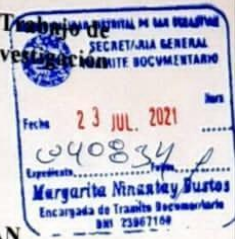 Trabajo de
vestigación
DISTRITAL DE SAN SEBASTIAN
SECRETARIA GENERAL
TRAMITE DOCUMENTARIO
Hora
Fecha 23 JUL. 2021
Expediente
Margarita Ninantay Bustos
Encargada de Tramite Documentario
DNI 23967160
AN